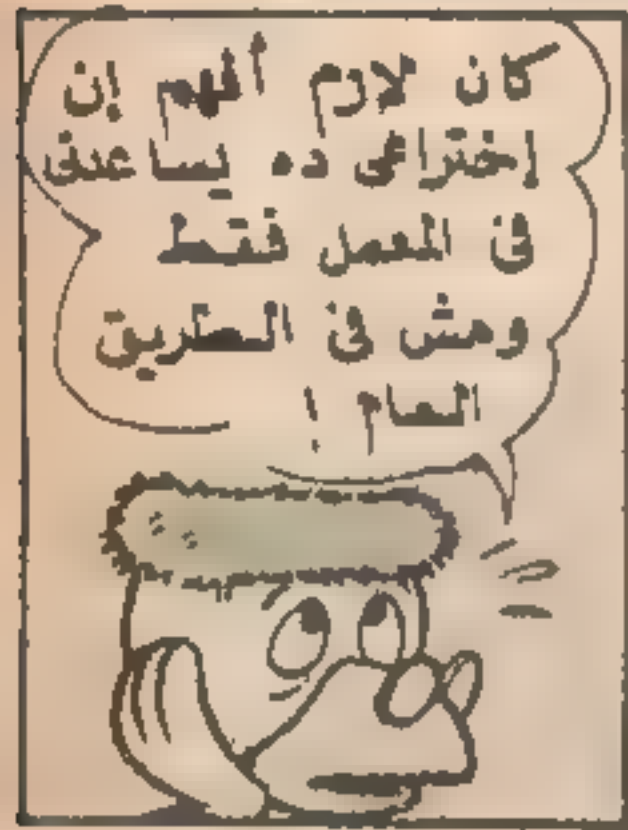 كان لازم أفهم إن
إختراعى ده يساعدنى
فى المعمل فقط
ومش فى الطريق
العام !